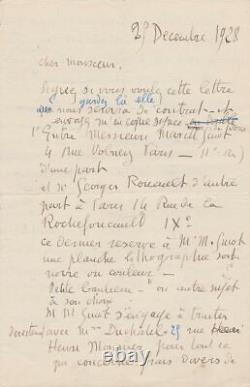 29 Decembre 1928
cher monsieur,
Signez si vous voulez cette lettre
gardez la elle
nous servira de contrat et
envoyez m'en copie
Entre Messieurs Marcel Guiot
4 rue Volney Paris
d'une part
et Mr Georges Rouault d'autre
part à Paris 14 Rue de la
Rochefoucault IXe
ce dernier reserve à Mr M. Guiot
une planche lithographie soit
noire ou couleur
Petite banlieue ou autre sujet
à son choix
M M Guiot s'engage à traiter
directement avec Mr Duchatel 25 rue
Henri Monnier pour tout ce
qui concerne frais divers de